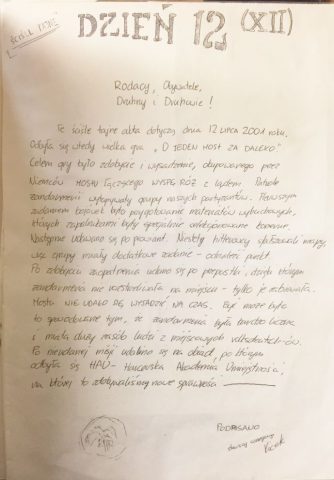 ŚCIŚLE TAJNE
DZIEŃ 12 (XII)
Rodacy, Obywatele,
Druhny i Druhowie!
Te ściśle tajne akta dotyczą dnia 12 lipca 2001 roku.
Odbyła się wtedy wielka gra „O JEDEN MOST ZA DALEKO”
Celem gry było zdobycie i wysadzenie, okupowanego przez
Niemców mostu łączącego WYSPĘ RÓŻ z lądem. Patrole
żandarmerii wyłapywały grupy naszych partyzantów. Pierwszym
zadaniem bojówek było przygotowanie materiałów wybuchowych,
których zapalnikami były specjalnie
Następnie udawano się po prowiant. Niestety hitlerowcy
więc grupy miały dodatkowe zadanie - odnaleźć punkt.
Po zdobyciu zaopatrzenia udano się po przepustki, dzięki którym
żandarmeria nie rozstrzeliwała na miejscu - tylko je
Mostu NIE UDAŁO SIĘ WYSADZIĆ NA CZAS. Być może było
to spowodowane tym, że żandarmeria była bardzo liczna
i miała duży zasób ludzi z miejscowych
Po nieudanej misji udaliśmy się na obiad, po którym
odbyła się HAU - Harcerska Akademia Umiejętności,
na której to zdobywaliśmy nowe sprawności
PODPISANO